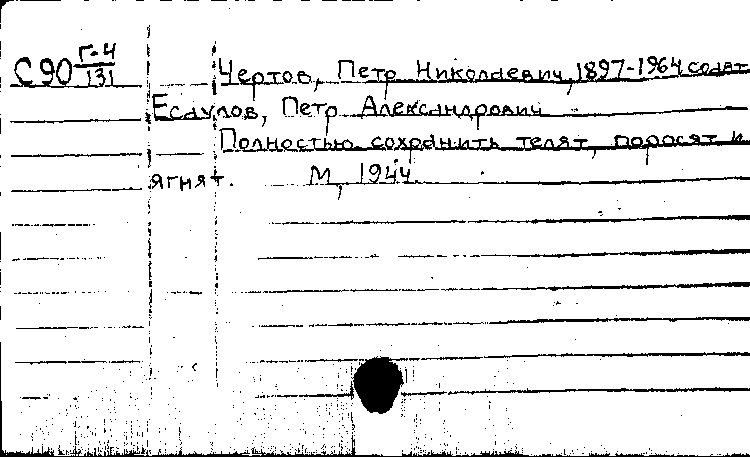 С90 Г-4/131
Чертов, Петр Николаевич, 1897-1964 соавт
Есаулов, Петр Александрович
Полностью сохранить телят, поросят и
ягнят. М, 1944